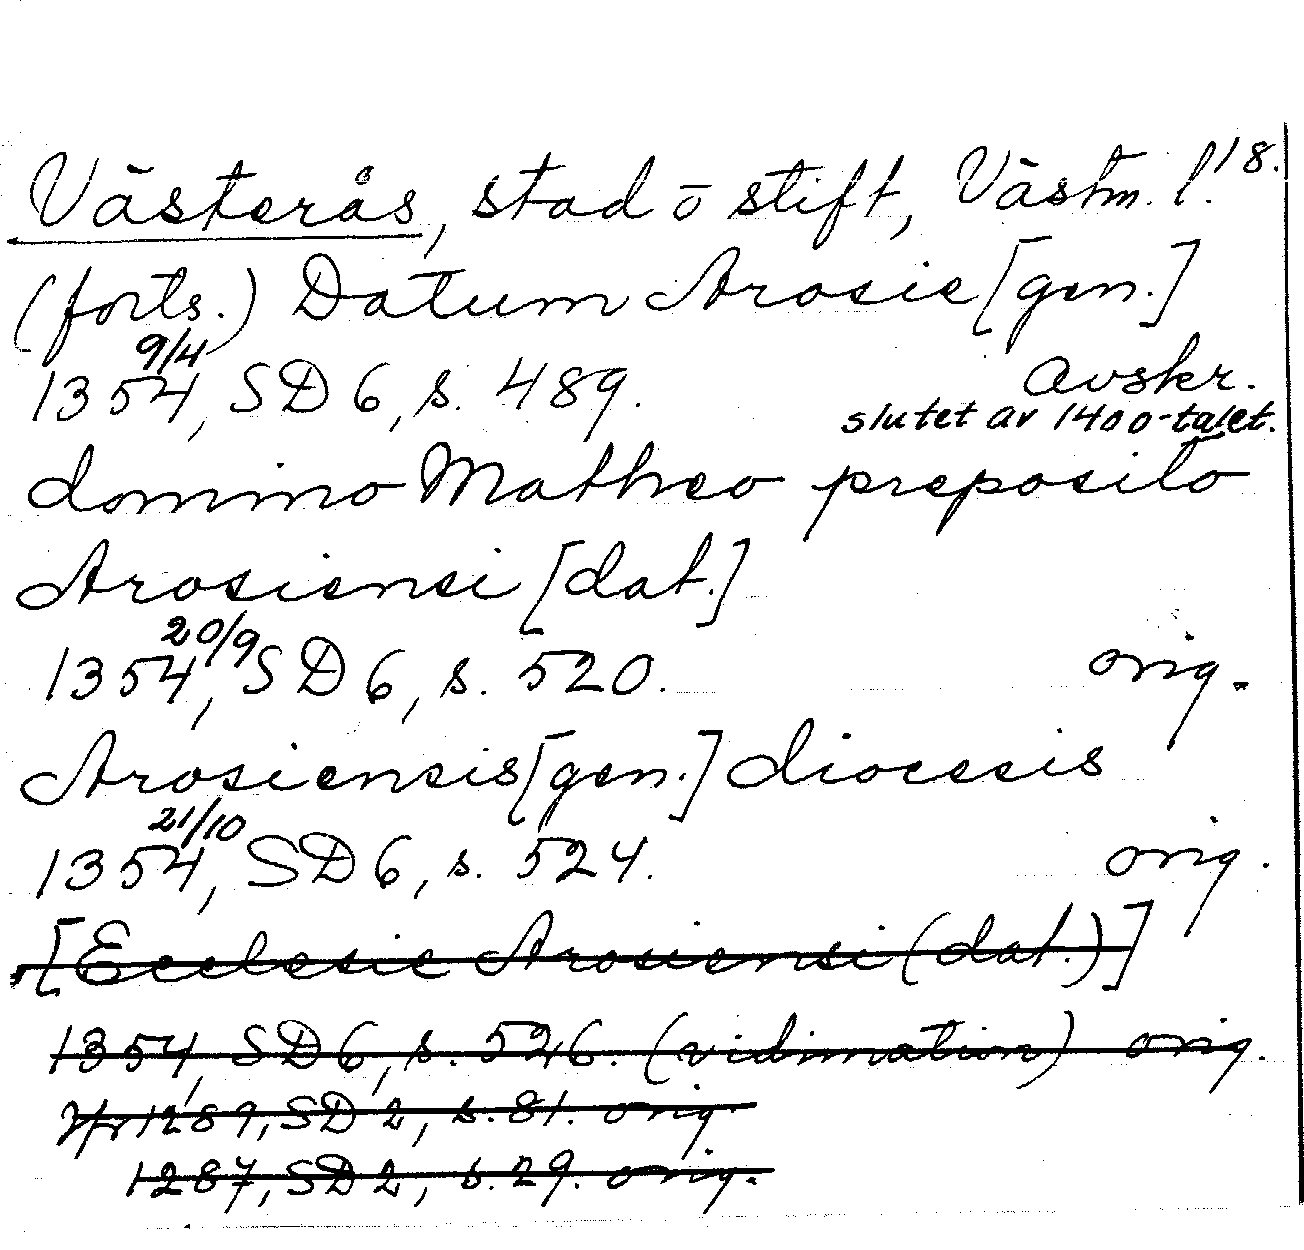 Västerås, stad o stift, Västm. l. 18.
(forts.) Datum Arosie [gen.]
1354 9/4, SD 6, s. 489. Avskr.
slutet av 1400-talet.
domino Matheo preposito
Arosiensi [dat.]
1354 20/9, SD 6, s. 520. orig.
Arosiensis [gen.] diocesis
1354 21/10, SD 6, s. 524. orig.
[Ecclesie Arosiensi (dat.)]
1354, SD 6, s. 526. (vidimation) orig.
1289, SD 2, s. 81. orig.
1287, SD 2, s. 29. orig.